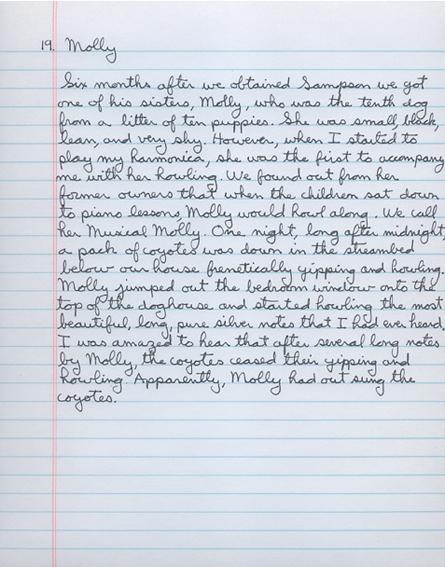 19. Molly
Six months after we obtained Sampson we got
one of his sisters, Molly, who was the tenth dog
from a litter of ten puppies. She was small, black,
lean, and very shy. However, when I started to
play my harmonica, she was the first to accompany
me with her howling. We found out from her
former owners that when the children sat down
to piano lessons, Molly would howl along. We call
her Musical Molly. One night, long after midnight,
a pack of coyotes was down in the streambed
below our house frenetically yipping and howling.
Molly jumped out the bedroom window onto the
top of the doghouse and started howling the most
beautiful, long, pure silver notes that I had ever heard.
I was amazed to hear that after several long notes
by Molly, the coyotes ceased their yipping and
howling. Apparently, Molly had out sung the
coyotes.